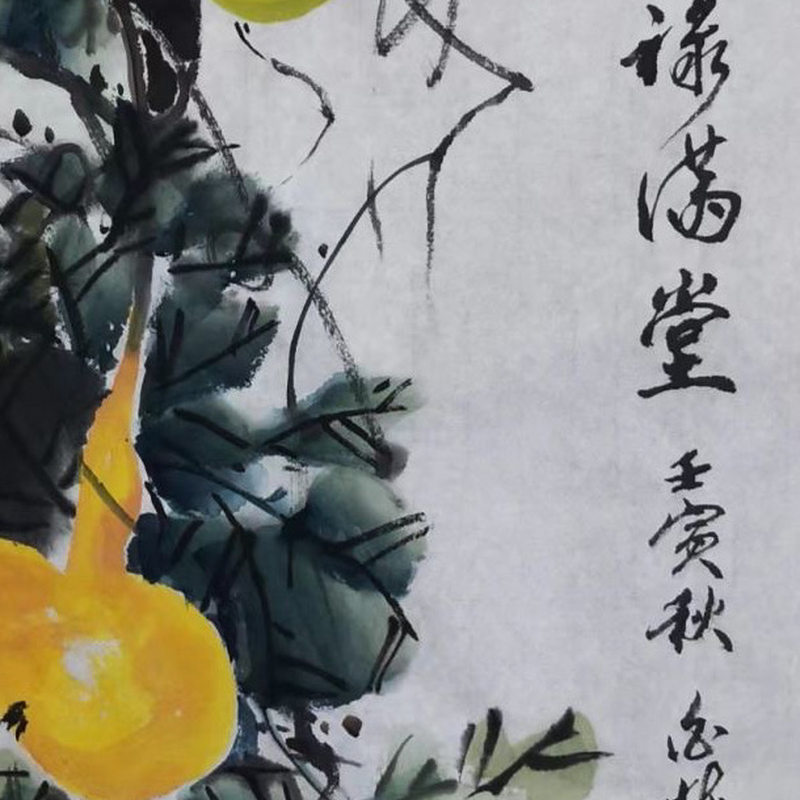 禄满堂壬寅秋